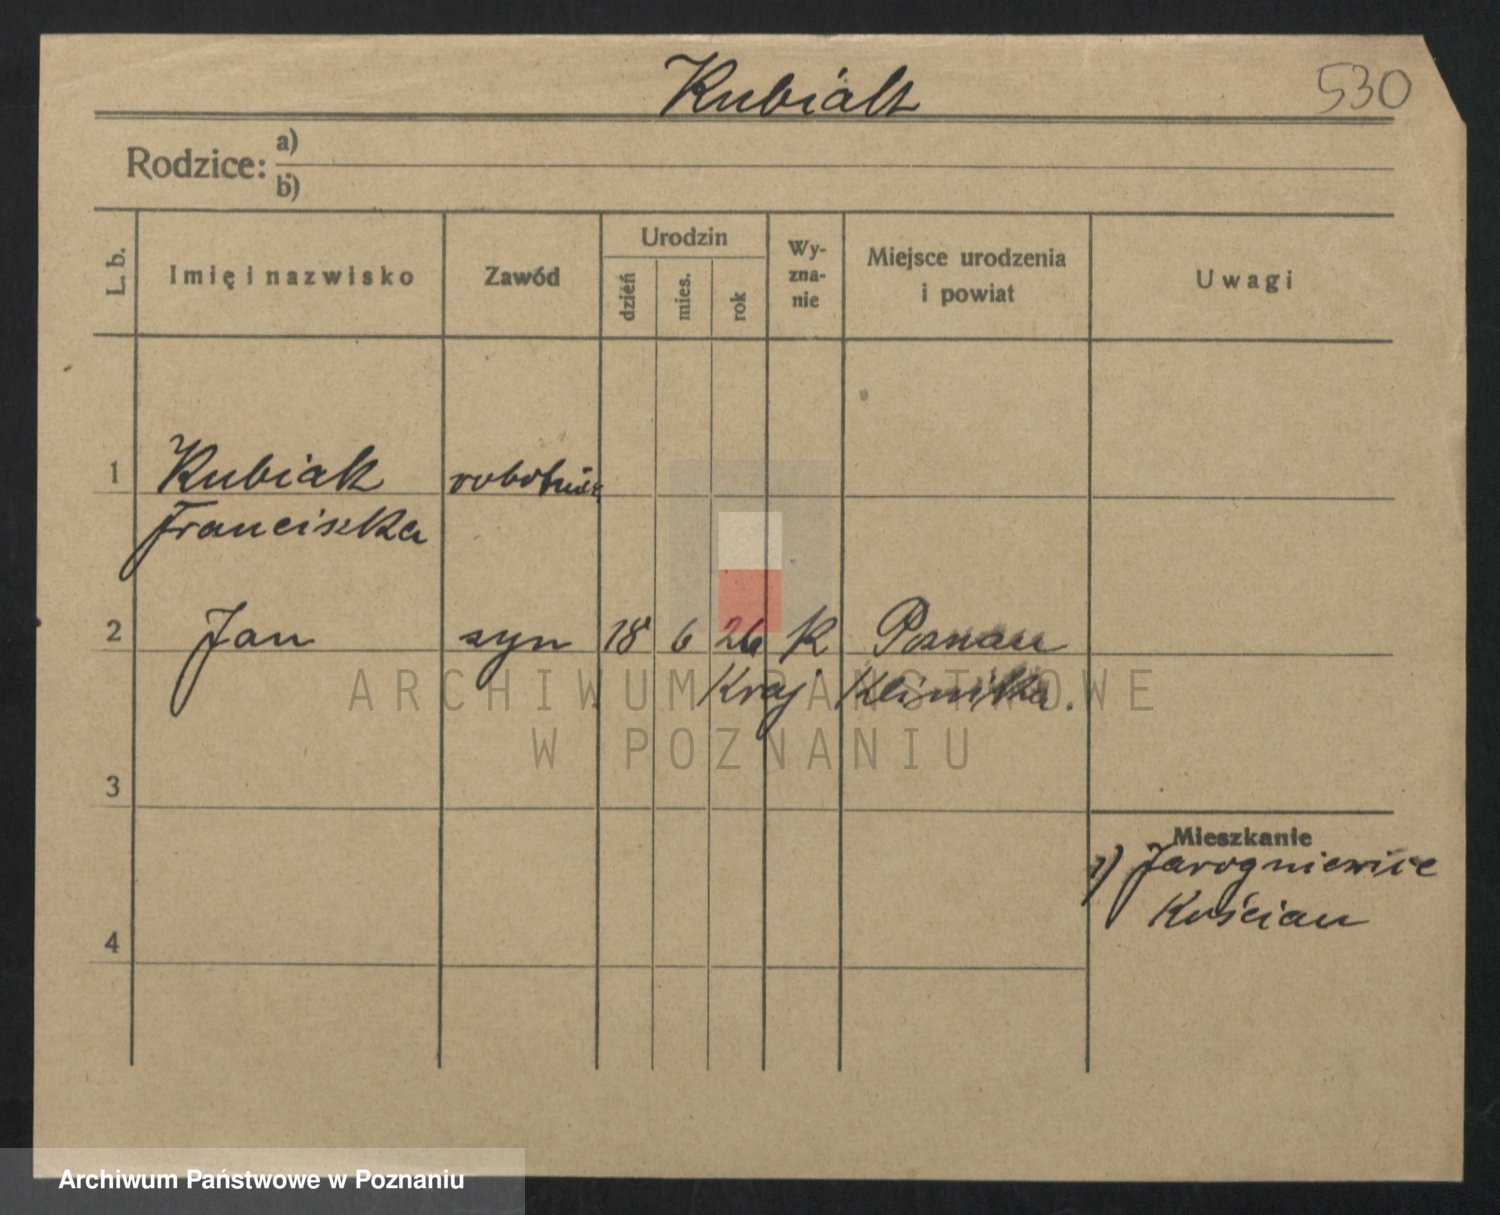 Kubiak
530
Rodzice: a)
b)
L. b. Imię i nazwisko Zawód Urodzin dzień mies. rok Wy-zna-nie Miejsce urodzenia i powiat Uwagi
1 Kubiak
Franciszka
2 Jan syn 18 6 26 K Poznan
Kraj Klinika.
ARCHIWUM PAŃSTWOWE
W POZNANIU
3
Mieszkanie
1) Jarogniewice
Kościan
4
Archiwum Państwowe w Poznaniu